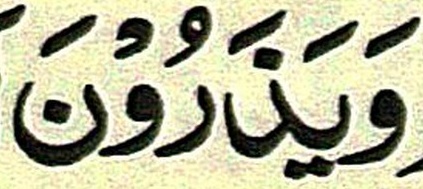 وَيَذَرُوْنَ